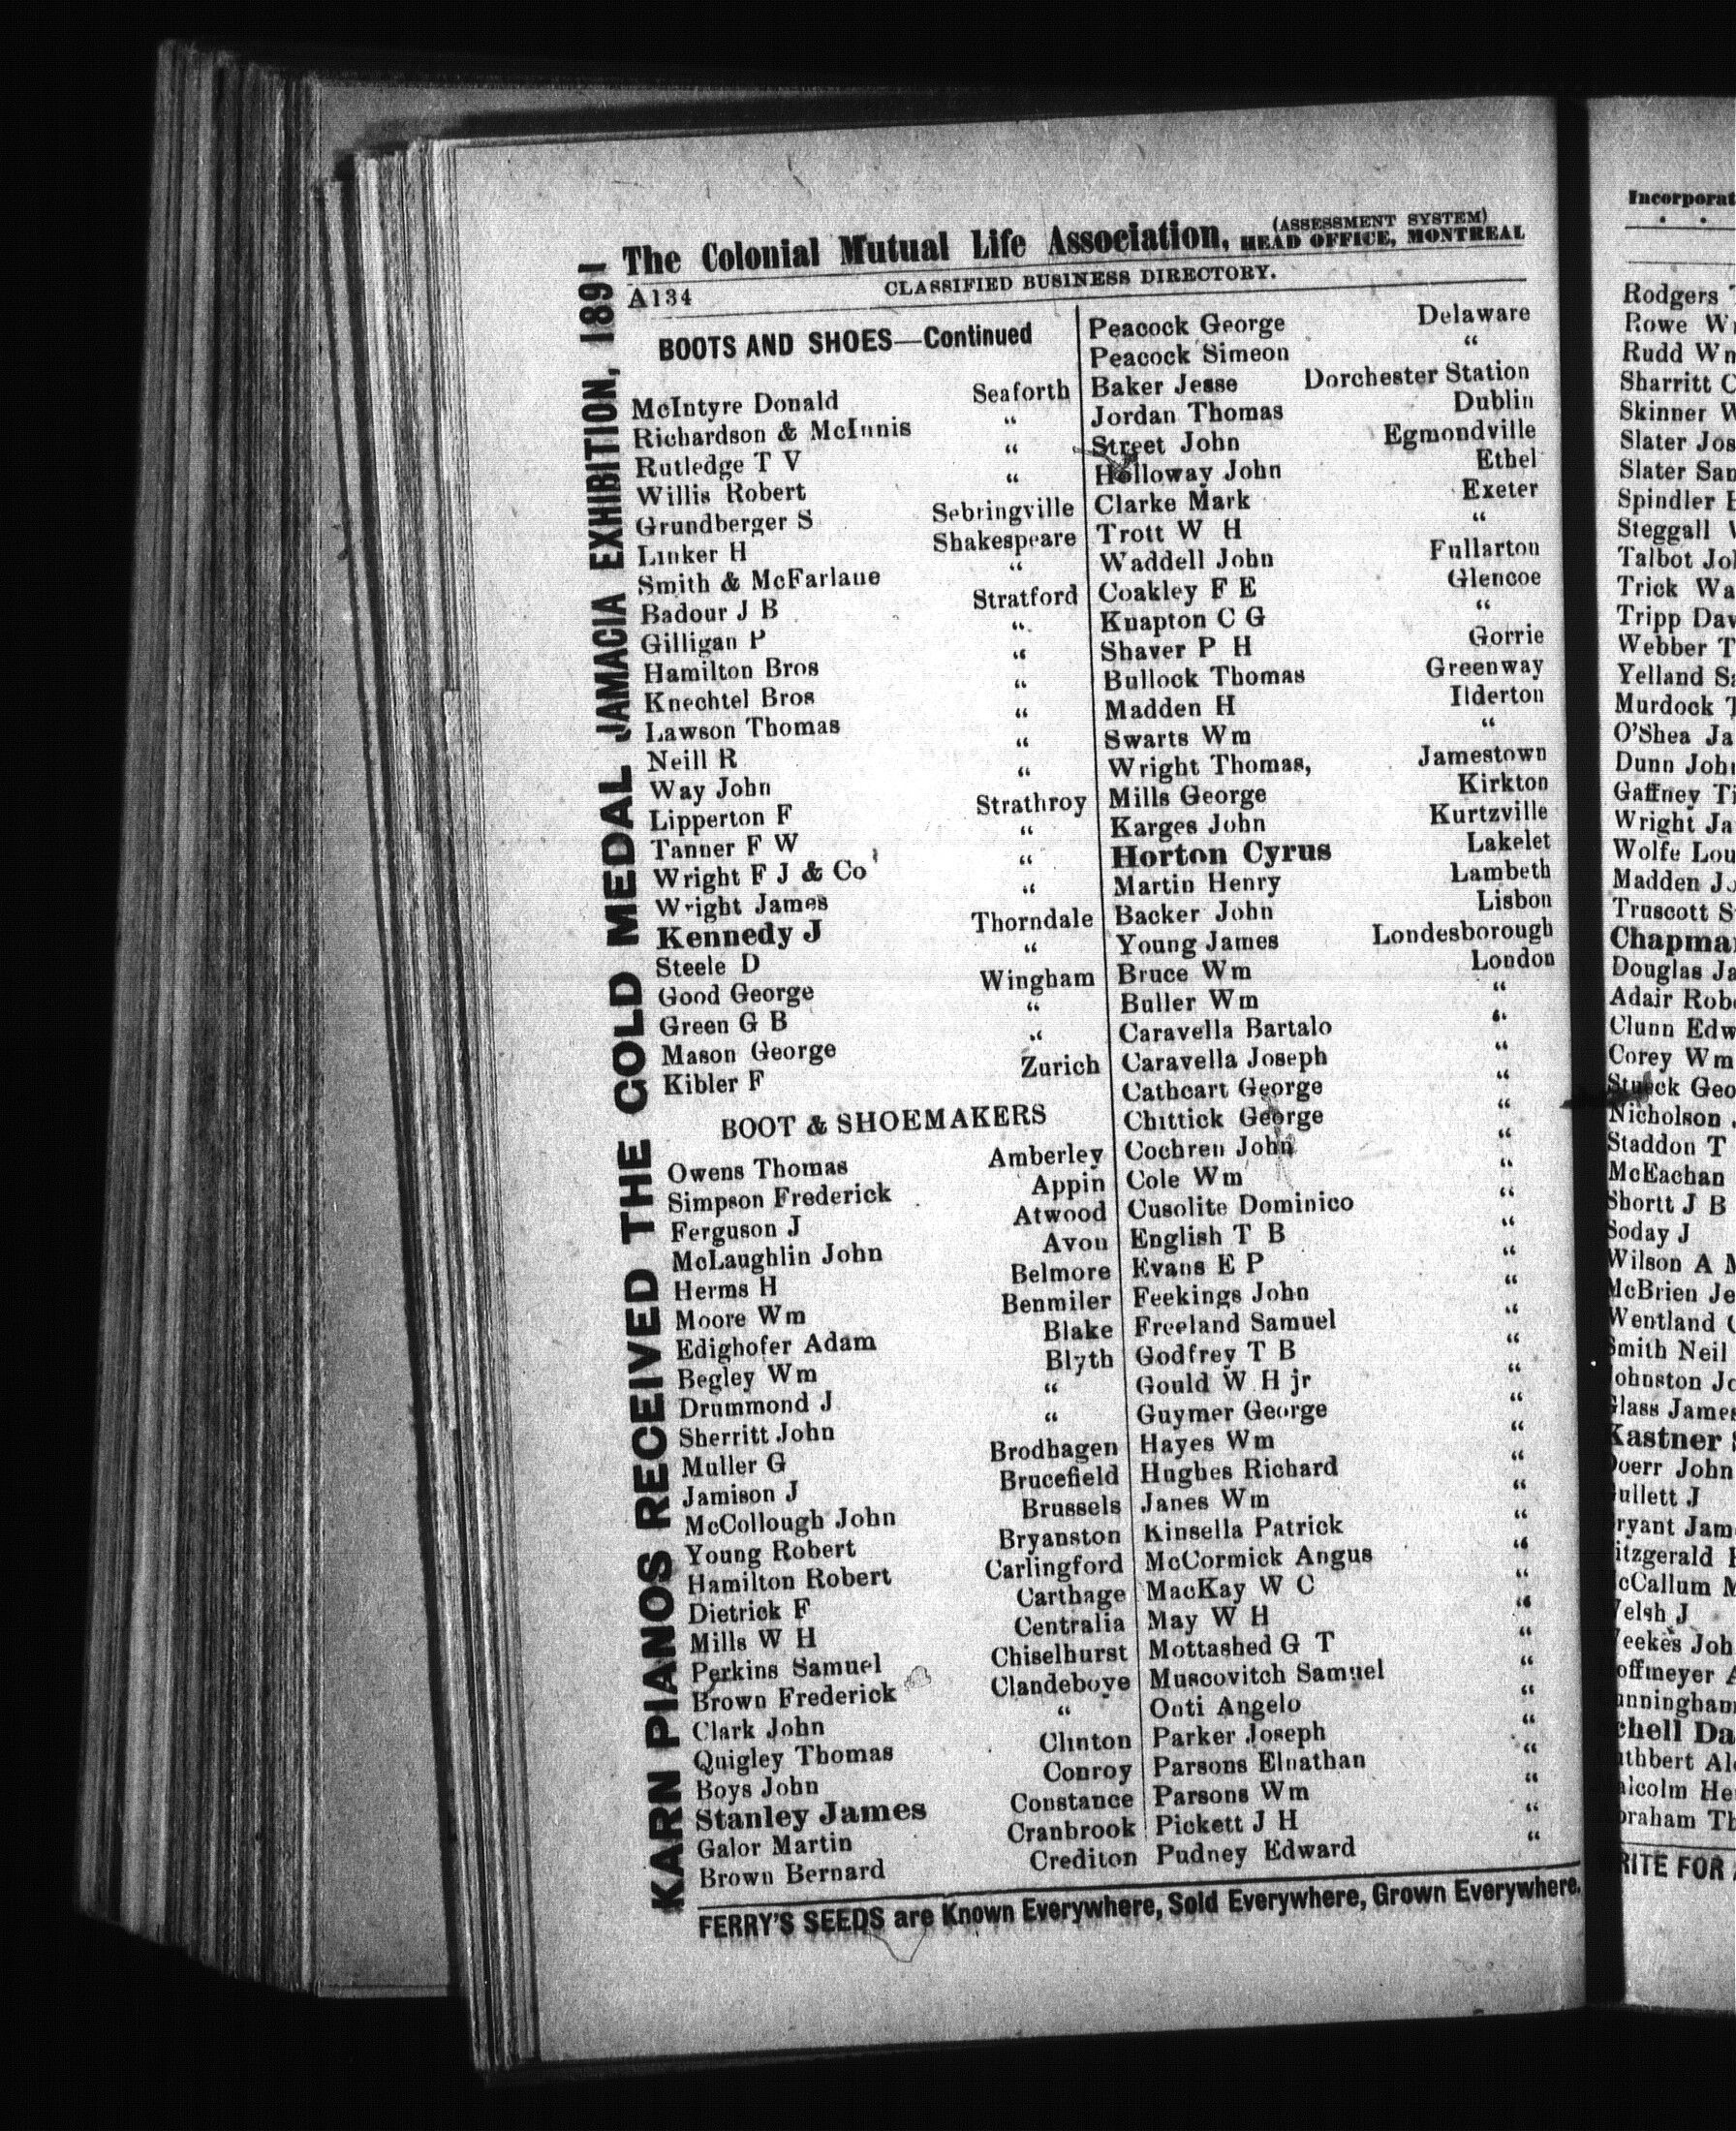 The Colonial Mutual Life Association, (ASSESSMENT SYSTEM) HEAD OFFICE, MONTREAL
A134 CLASSIFIED BUSINESS DIRECTORY.
KARN PIANOS RECEIVED THE GOLD MEDAL JAMACIA EXHIBITION, 1891
BOOTS AND SHOES—Continued
McIntyre Donald Seaforth
Richardson & McInnis “
Rutledge T V “
Willis Robert “
Grundberger S Sebringville
Linker H Shakespeare
Smith & McFarlane “
Badour J B Stratford
Gilligan P “
Hamilton Bros “
Knechtel Bros “
Lawson Thomas “
Neill R “
Way John “
Lipperton F Strathroy
Tanner F W “
Wright F J & Co “
Wright James “
Kennedy J Thorndale
Steele D “
Good George Wingham
Green G B “
Mason George “
Kibler F Zurich
BOOT & SHOEMAKERS
Owens Thomas Amberley
Simpson Frederick Appin
Ferguson J Atwood
McLaughlin John Avon
Herms H Belmore
Moore Wm Benmiler
Edighofer Adam Blake
Begley Wm Blyth
Drummond J “
Sherritt John “
Muller G Brodhagen
Jamison J Brucefield
McCollough John Brussels
Young Robert Bryanston
Hamilton Robert Carlingford
Dietrick F Carthage
Mills W H Centralia
Perkins Samuel Chiselhurst
Brown Frederick Clandeboye
Clark John “
Quigley Thomas Clinton
Boys John Conroy
Stanley James Constance
Galor Martin Cranbrook
Brown Bernard Crediton
Peacock George Delaware
Peacock Simeon “
Baker Jesse Dorchester Station
Jordan Thomas Dublin
Street John Egmondville
Holloway John Ethel
Clarke Mark Exeter
Trott W H “
Waddell John Fullarton
Coakley F E Glencoe
Knapton C G “
Shaver P H Gorrie
Bullock Thomas Greenway
Madden H Ilderton
Swarts Wm “
Wright Thomas, Jamestown
Mills George Kirkton
Karges John Kurtzville
Horton Cyrus Lakelet
Martin Henry Lambeth
Backer John Lisbon
Young James Londesborough
Bruce Wm London
Buller Wm “
Caravella Bartalo “
Caravella Joseph “
Cathcart George “
Chittick George “
Cochren John “
Cole Wm “
Cusolite Dominico “
English T B “
Evans E P “
Feekings John “
Freeland Samuel “
Godfrey T B “
Gould W H jr “
Guymer George “
Hayes Wm “
Hughes Richard “
Janes Wm “
Kinsella Patrick “
McCormick Angus “
MacKay W C “
May W H “
Mottashed G T “
Muscovitch Samuel “
Onti Angelo “
Parker Joseph “
Parsons Elnathan “
Parsons Wm “
Pickett J H “
Pudney Edward “
FERRY'S SEEDS are Known Everywhere, Sold Everywhere, Grown Everywhere.
Rodgers
Rowe
Rudd
Sharritt
Skinner
Slater
Slater
Spindler
Steggall
Talbot
Trick
Tripp
Webber
Yelland
Murdock
O'Shea
Dunn
Gaffney
Wright
Wolfe
Madden
Truscott
Douglas
Adair
Clunn
Corey Wm
Nicholson
Staddon T
McEachan
Shortt J B
Soday J
Wilson A